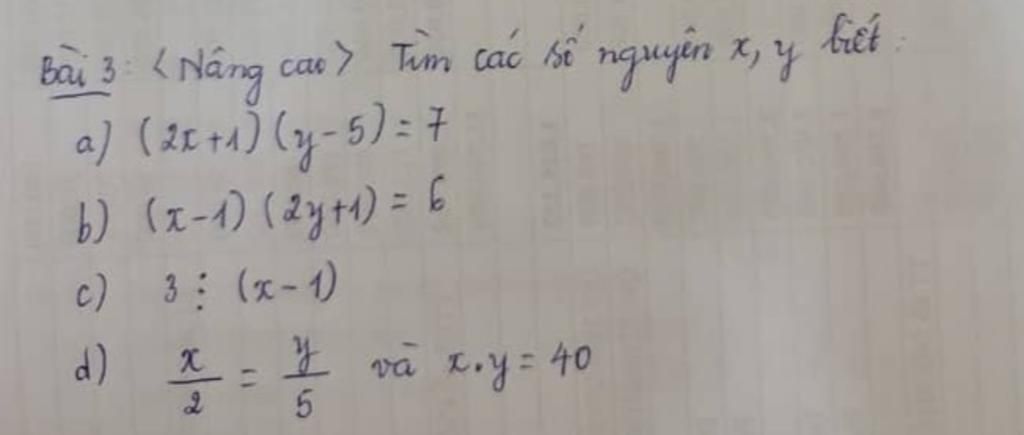 Bài 3: <Nâng cao> Tìm các số nguyên x, y biết:
a) (2x+1)(y-5)=7
b) (x-1)(2y+1)=6
c) 3 ⋮ (x-1)
d) x/2 = y/5 và x.y = 40